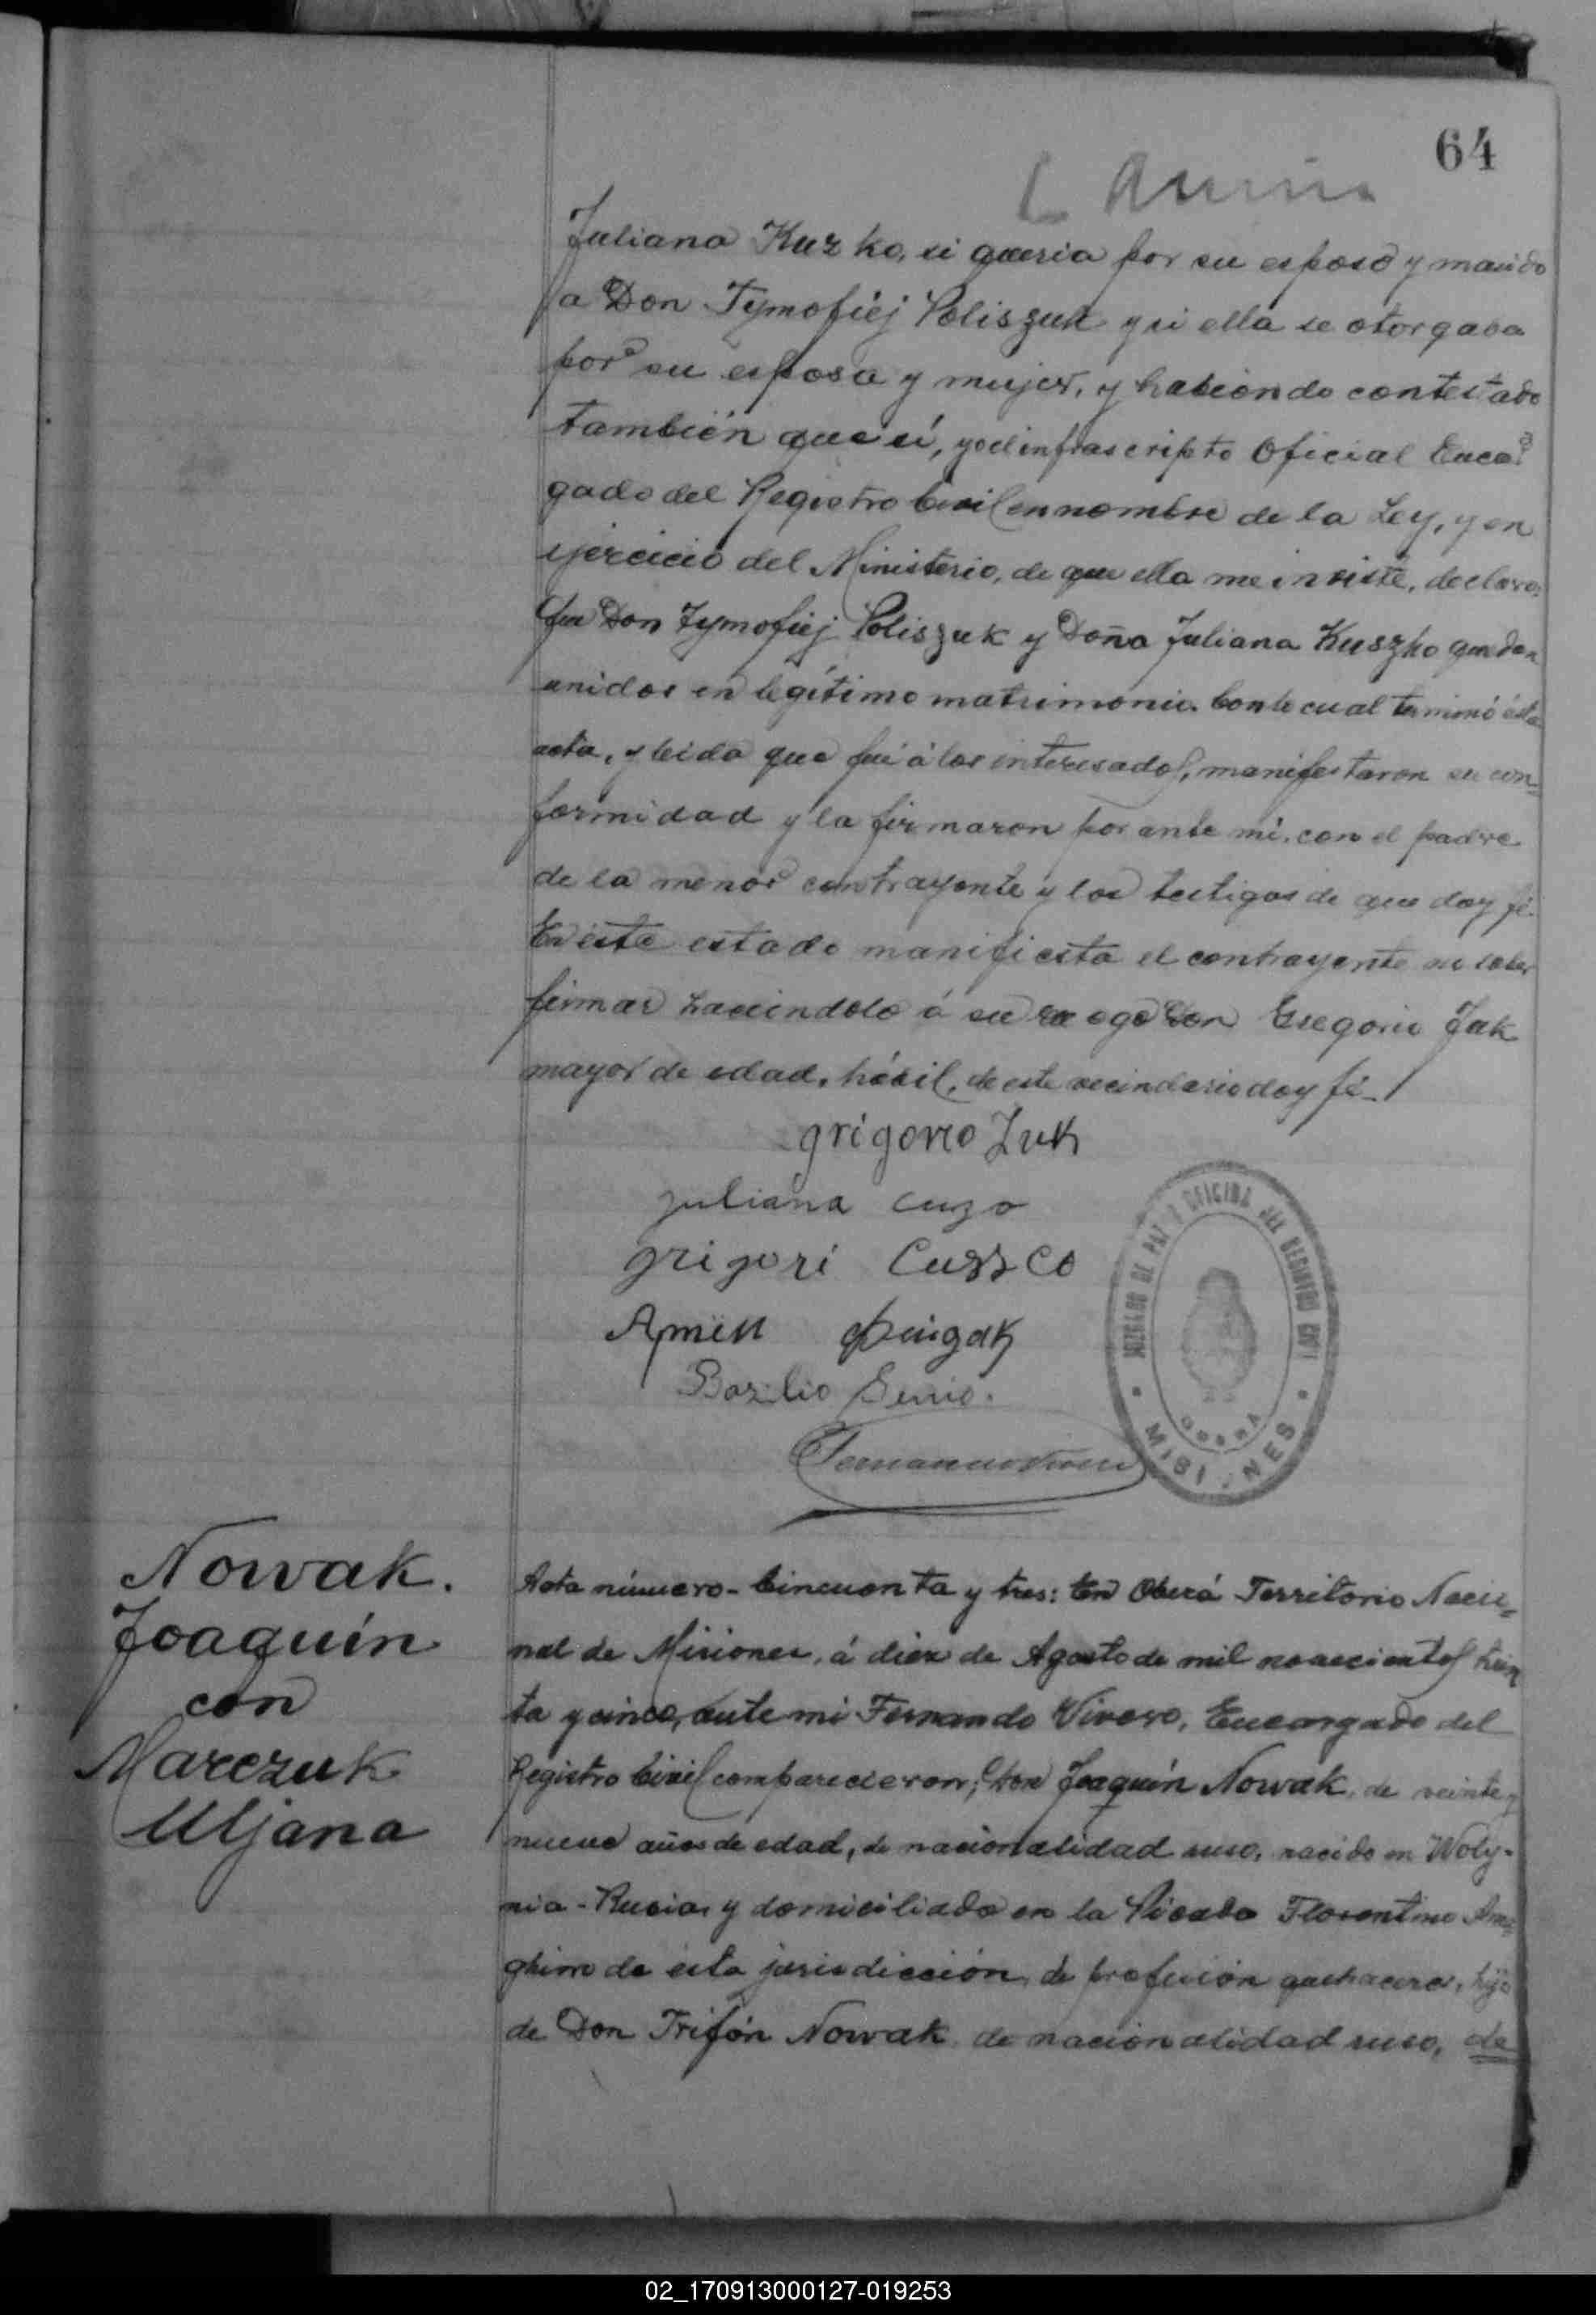 64
Juliana Kuzko, si queria por su esposo y marido
a Don Tymofiej Poliszuk y si ella se otorgaba
por su esposa y mujer, y habiendo contestado
también que sí, yo el infrascripto Oficial Encar
gado del Registro Civil en nombre de la Ley, y en
ejercicio del Ministerio, de que ella me inviste, declaro:
Que Don Tymofiej Poliszuk y Doña Juliana Kuszko quedan
unidos en legítimo matrimonio. Con lo cual terminó ésta
acta, y leida que fué á los interesados, manifestaron su con=
formidad y la firmaron por ante mi, con el padre
de la menor contrayente y los testigos de que doy fé.
En éste estado manifiesta el contrayente no saber
firmar haciendolo á su ruego Don Gregorio Juk
mayor de edad, hábil, de este vecindario doy fé_
grigorio Juk
juliana cuzo
grigori Cuszco
Bazilio
JUZGADO DE PAZ Y OFICINA DEL REGISTRO CIVIL
OBERA
MISIONES
Nowak.
Joaquín
con
Marczuk
Uljana
Acta número - Cincuenta y tres: En Oberá Territorio Nacio=
nal de Misiones, á diez de Agosto de mil novecientos trein
ta y cinco, ante mi Fernando Vivero, Encargado del
Registro Civil comparecieron; Don Joaquín Nowak, de veinte y
nueve años de edad, de nacionalidad ruso, nacido en Woly-
nia - Rusia, y domiciliado en la Picada Florentino Ame
ghino de ésta jurisdicción, de profesión quehaceres, hijo
de Don Trifón Nowak de nacionalidad ruso, de
02_170913000127-019253